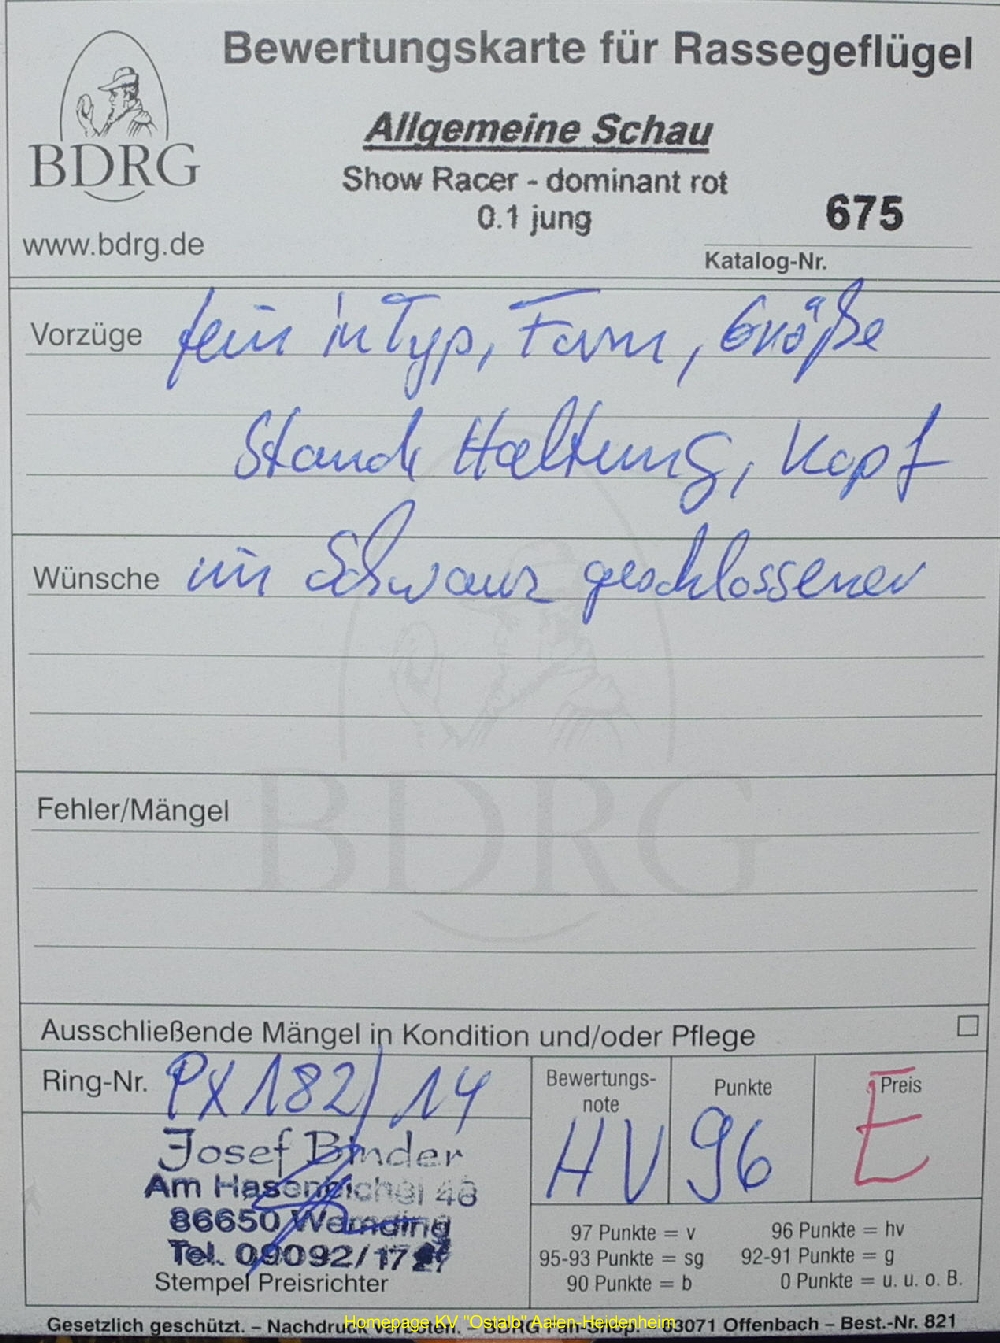 Bewertungskarte für Rassegeflügel
BDRG
www.bdrg.de
Allgemeine Schau
Show Racer - dominant rot
0.1 jung
675
Katalog-Nr.
Vorzüge fein in Typ, Form, Größe
Stand Haltung, Kopf
Wünsche im Schwanz geschlossener
BDRG
Fehler/Mängel
Ausschließende Mängel in Kondition und/oder Pflege
Ring-Nr. PX182/14
Bewertungs-
note
HV
Punkte
96
Preis
E
Josef Binder
Am Hasenbichel 48
86650 Wemding
Tel. 09092/17
Stempel Preisrichter
97 Punkte = v 96 Punkte = hv
95-93 Punkte = sg 92-91 Punkte = g
90 Punkte = b 0 Punkte = u. u. o. B.
Gesetzlich geschützt. – Nachdruck verboten. – BDRG Fan-Shop. 63071 Offenbach – Best.-Nr. 821
Homepage KV "Ostalb" Aalen-Heidenheim